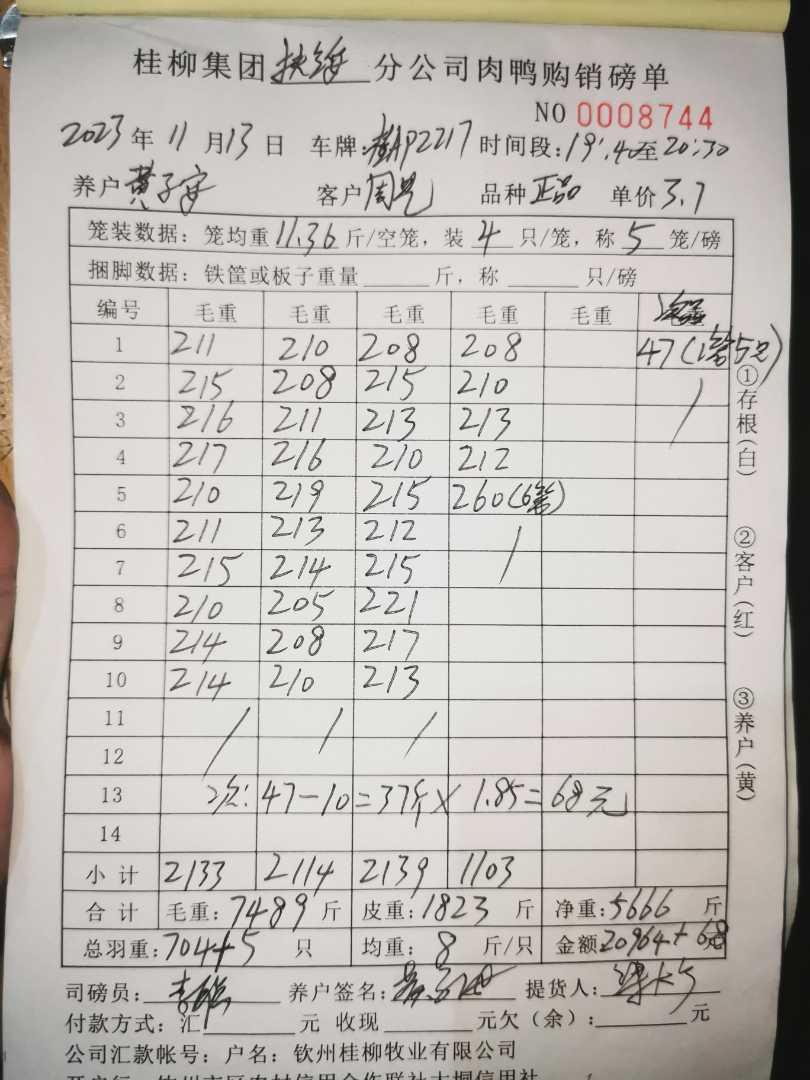 桂柳集团 分公司肉鸭购销磅单
NO 0008744
2023年11月13日 车牌: AP2217 时间段:19:40至20:30
养户黄子 客户周 品种正品 单价3.7
笼装数据:笼均重11.36斤/空笼,装4只/笼,称5笼/磅
捆脚数据:铁筐或板子重量____斤,称____只/磅
编号 毛重 毛重 毛重 毛重 毛重
1 211 210 208 208 47(1笼5只)
2 215 208 215 210 /
3 216 211 213 213
4 217 216 210 212
5 210 219 215 260(6笼)
6 211 213 212 /
7 215 214 215
8 210 205 221
9 214 208 217
10 214 210 213
11 / / /
12
13 次:47-10=37斤×1.85=68元
14
小计 2133 2114 2139 1103
合计 毛重:7489斤 皮重:1823斤 净重:5666斤
总羽重:704+5只 均重:8斤/只 金额20964+68元
司磅员: 养户签名: 提货人:
付款方式:汇____元 收现____元欠(余):____元
公司汇款帐号:户名:钦州桂柳牧业有限公司
①存根(白) ②客户(红) ③养户(黄)